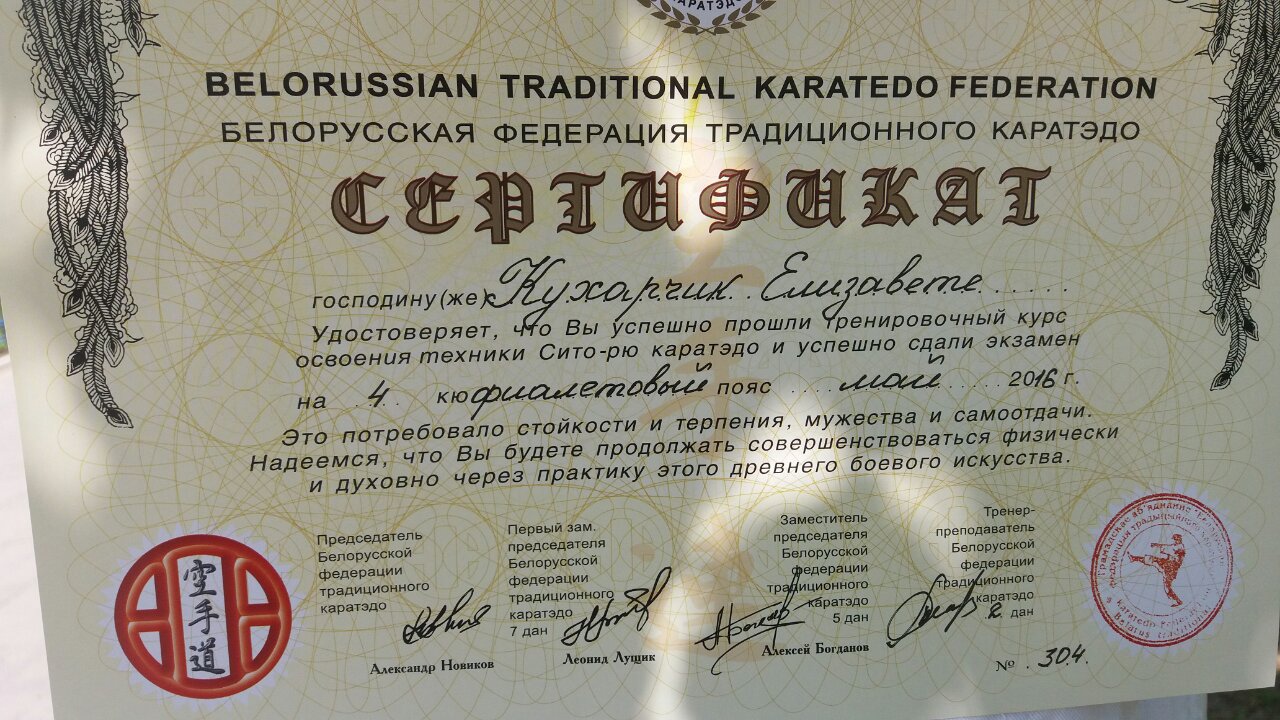 КАРАТЭДО
BELORUSSIAN TRADITIONAL KARATEDO FEDERATION
БЕЛОРУССКАЯ ФЕДЕРАЦИЯ ТРАДИЦИОННОГО КАРАТЭДО
СЕРТИФИКАТ
господину(же) Кухарчик Елизавете
Удостоверяет, что Вы успешно прошли тренировочный курс
освоения техники Сито-рю каратэдо и успешно сдали экзамен
на 4 кю фиалетовый пояс май 2016 г.
Это потребовало стойкости и терпения, мужества и самоотдачи.
Надеемся, что Вы будете продолжать совершенствоваться физически
и духовно через практику этого древнего боевого искусства.
空手道
Председатель
Белорусской
федерации
традиционного
каратэдо
Александр Новиков
Первый зам.
председателя
Белорусской
федерации
традиционного
каратэдо
7 дан
Леонид Лущик
Заместитель
председателя
Белорусской
федерации
традиционного
каратэдо
5 дан
Алексей Богданов
Тренер-
преподаватель
Белорусской
федерации
традиционного
каратэдо
2 дан
№ 304.